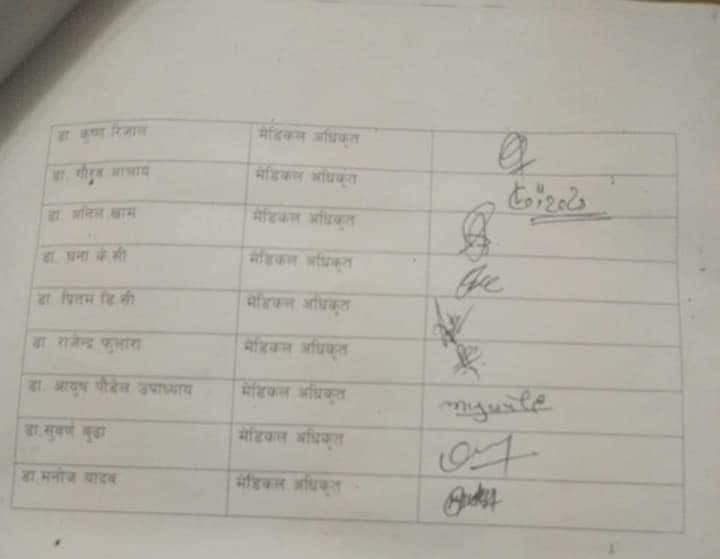 डा कृष्ण रिजाल मेडिकल अधिकृत
डा. गौरव आचार्य मेडिकल अधिकृत
डा अनिल खाम मेडिकल अधिकृत
डा. घना के.सी मेडिकल अधिकृत
डा प्रितम डि.सी मेडिकल अधिकृत
डा राजेन्द्र फुलारा मेडिकल अधिकृत
डा. आयुष पौडेल उपाध्याय मेडिकल अधिकृत
डा.सुवर्ण बुढा मेडिकल अधिकृत
डा.मनोज यादव मेडिकल अधिकृत